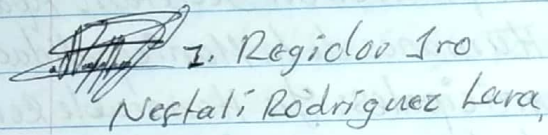 1. Regidor 1ro
Neftali Rodriguez Lara,